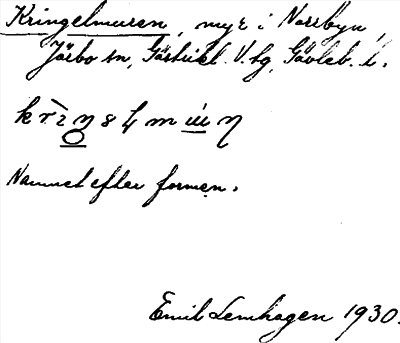 Kringelmuren, myr i Norrbyn,
Järbo sn, Gästrikl. V. tg, Gävleb. l.
Namnet efter formen.
Emil Lemhagen 1930.